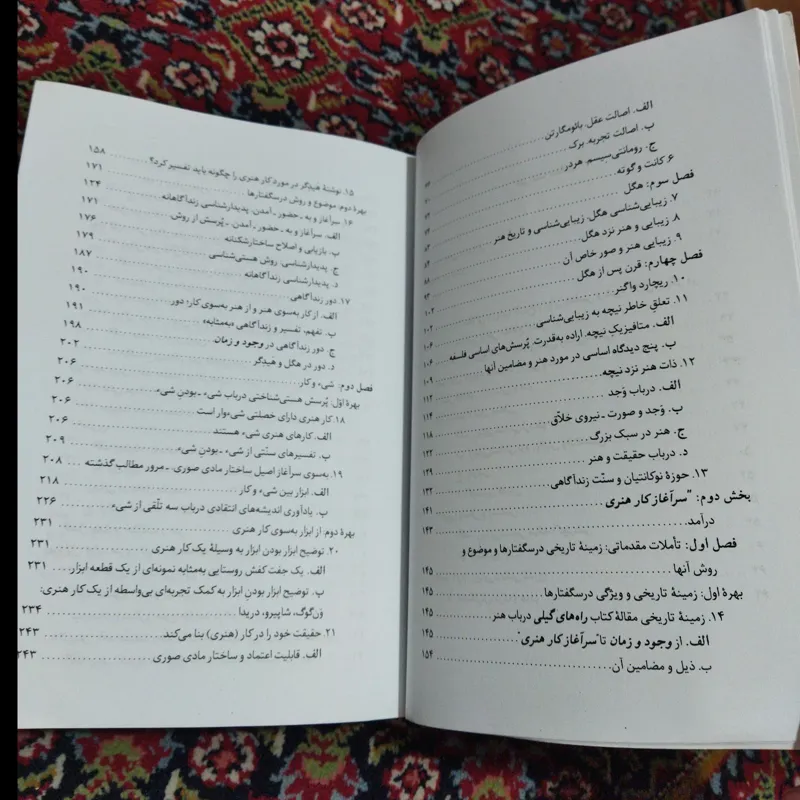 الف. اصالت عقل، بائومگارتن
ب. اصالت تجربه، برک
ج. رومانتی‌سیسم، هردر
۶. کانت و گوته
فصل سوم: هگل
۷. زیبایی‌شناسی هگل، زیبایی‌شناسی و تاریخ هنر
۸. زیبایی و هنر نزد هگل
۹. زیبایی هنر و صور خاص آن
فصل چهارم: قرن پس از هگل
۱۰. ریچارد واگنر ۱۰۲
۱۱. تعلق خاطر نیچه به زیبایی‌شناسی ۱۰۲
الف. متافیزیک نیچه، اراده به‌قدرت، پُرسش‌های اساسی فلسفه ۱۰۶
ب. پنج دیدگاه اساسی در مورد هنر و مضامین آنها ۱۰۶
۱۲. ذات هنر نزد نیچه ۱۰۹
الف. درباب وَجد ۱۱۲
ب. وَجد و صورت ـ نیروی خلّاق ۱۱۴
ج. هنر در سبک بزرگ ۱۱۸
د. درباب حقیقت و هنر ۱۲۲
۱۳. حوزهٔ نوکانتیان و سنّت زندآگاهی ۱۲۹
بخش دوم: "سرآغاز کار هنری ۱۴۱
درآمد ۱۴۳
فصل اول: تأملات مقدماتی: زمینهٔ تاریخی درسگفتارها و موضوع و
روش آنها ۱۴۵
بهرهٔ اول: زمینهٔ تاریخی و ویژگی درسگفتارها ۱۴۵
۱۴. زمینهٔ تاریخی مقالهٔ کتاب راه‌های گیلی درباب هنر ۱۴۵
الف. از وجود و زمان تا "سرآغاز کار هنری" ۱۴۵
ب. ذیل و مضامین آن ۱۵۴
۱۵. نوشتهٔ هیدگر در مورد کار هنری را چگونه باید تفسیر کرد؟ ۱۵۸
بهرهٔ دوم: موضوع و روش درسگفتارها ۱۷۱
۱۶. سرآغاز و به ـ حضور ـ آمدن، پدیدارشناسی زندآگاهانه
الف. سرآغاز و به ـ حضور ـ آمدن ـ پُرسش از روش ۱۷۱
ب. بازیابی و اصلاح ساختارشکنانه ۱۷۶
ج. پدیدارشناسی، روش هستی‌شناسی ۱۷۹
د. پدیدارشناسی زندآگاهانه ۱۸۷
۱۷. دور زندآگاهی ۱۹۰
الف. از کار به‌سوی هنر و از هنر به‌سوی کار؛ دور ۱۹۰
ب. تفهم، تفسیر و زندآگاهی «به‌مثابه» ۱۹۱
ج. دور زندآگاهی در وجود و زمان ۱۹۸
د. دور در هگل و هیدگر ۲۰۲
فصل دوم: شیء و کار ۲۰۶
بهرهٔ اوّل: پُرسش هستی‌شناختی درباب شیء ـ بودنِ شیء ۲۰۶
۱۸. کار هنری دارای خصلتی شیءوار است ۲۰۶
الف. کارهای هنری شیء هستند ۲۰۶
ب. تفسیرهای سنّتی از شیء ـ بودنِ شیء ۲۰۹
۱۹. به‌سوی سرآغاز اصیل ساختار مادی صوری ـ مرور مطالب گذشته ۲۰۸
الف. ابزار بین شیء و کار ۲۱۸
ب. یادآوری اندیشه‌های انتقادی درباب سه تلّقی از شیء ۲۲۶
بهرهٔ دوم: از ابزار به‌سوی کار هنری ۲۳۱
۲۰. توضیح ابزار بودن ابزار به وسیلهٔ یک کار هنری ۲۳۱
الف. یک جفت کفش روستایی به‌مثابه نمونه‌ای از یک قطعه ابزار ۲۳۱
پ. توضیح ابزار بودنِ ابزار به کمک تجربه‌ای بی‌واسطه از یک کار هنری:
وَن‌گوگ، شاپیرو، دریدا ۲۳۴
۲۱. حقیقت خود را در کار (هنری) بنا می‌کند ۲۴۳
الف. قابلیت اعتماد و ساختار مادی صوری ۲۴۳